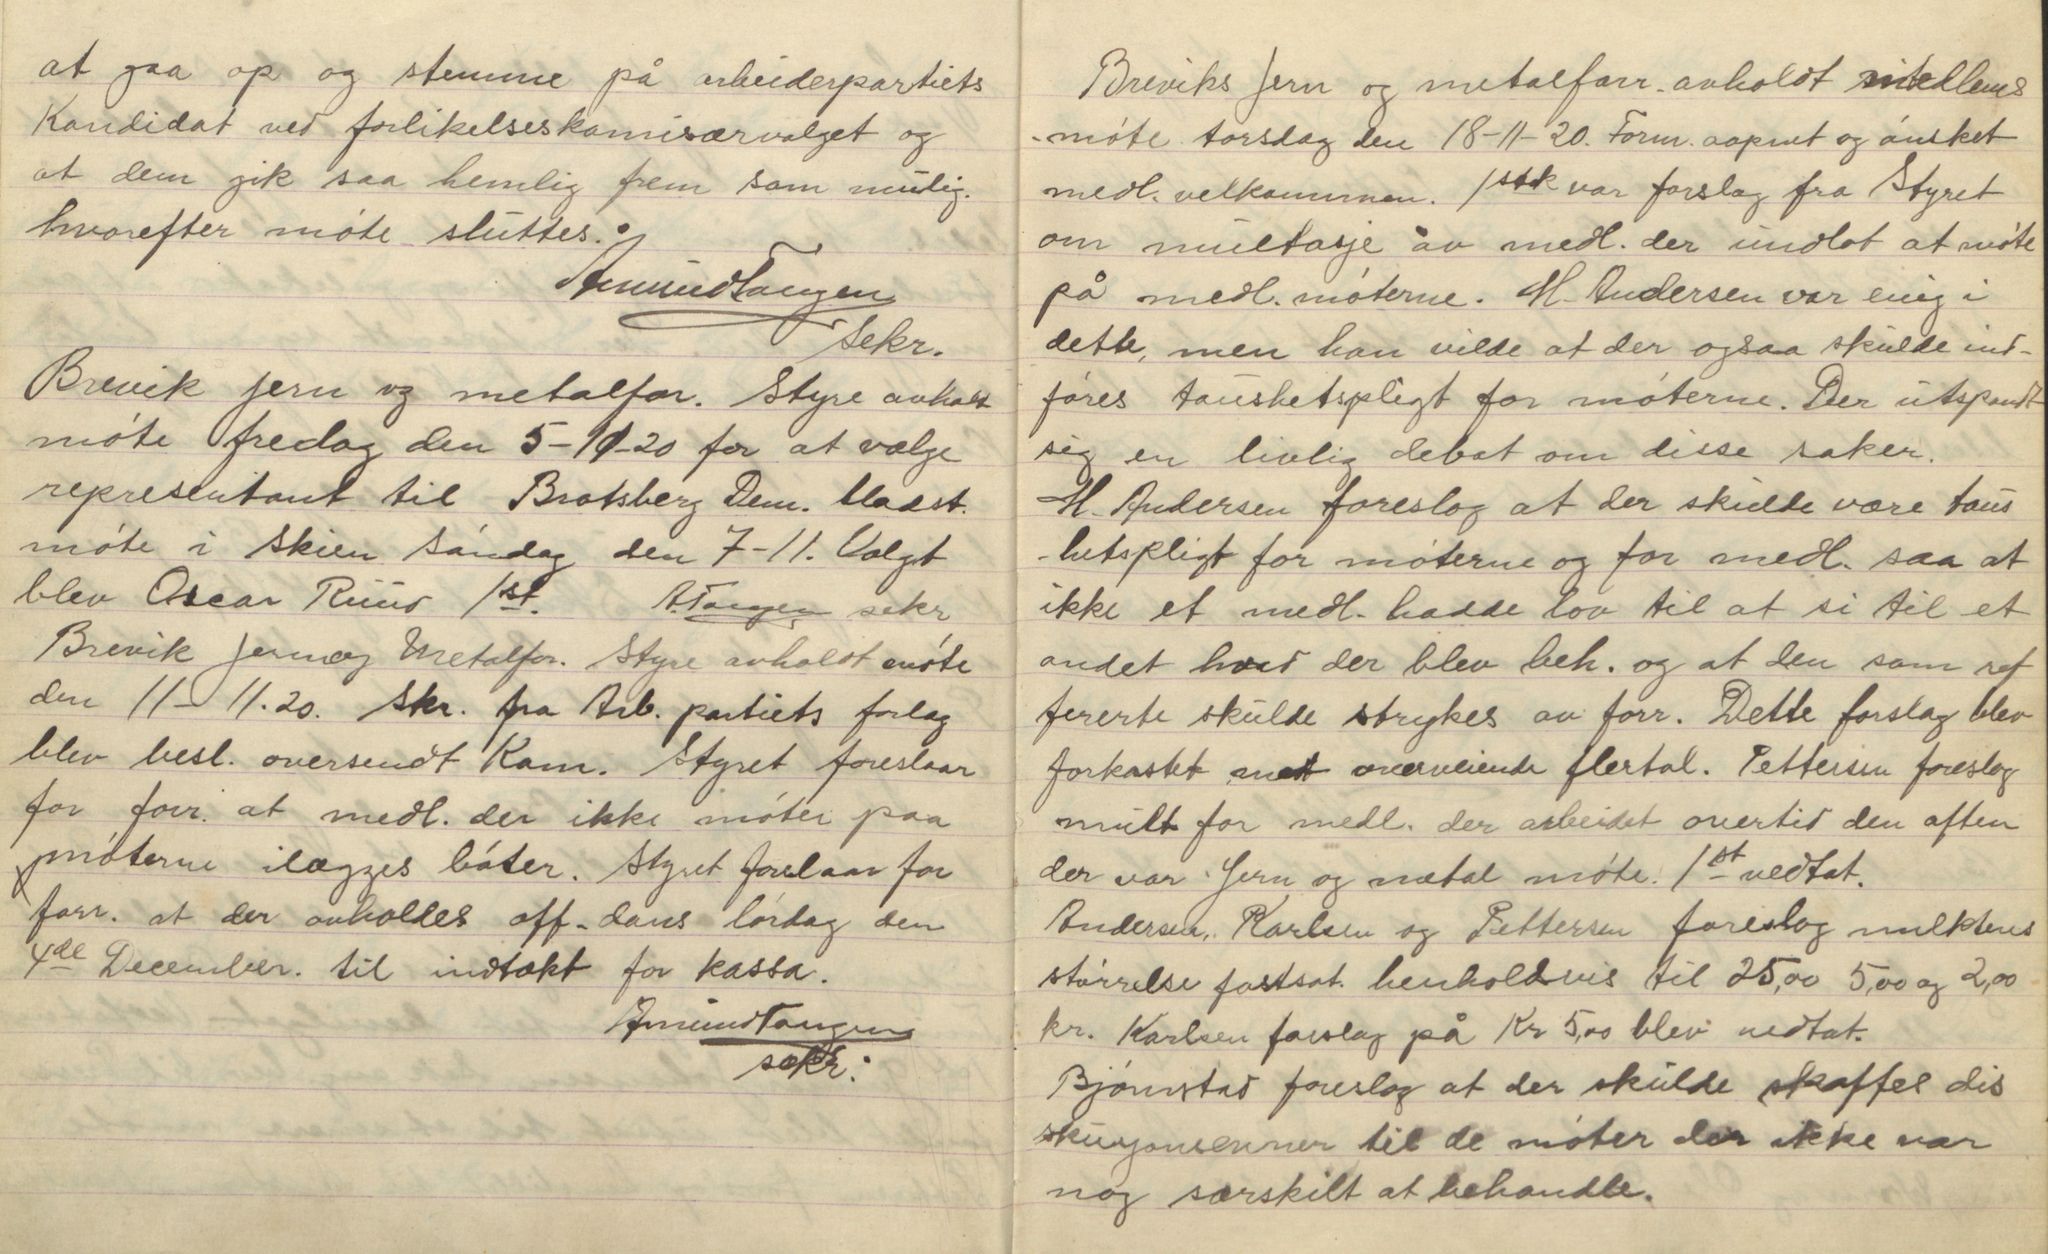 at gaa op og stemme på arbeiderpartiets
Kandidat ved forlikelseskomisærvalget og
at dem gik saa hemlig frem som mulig.
hvorefter móte sluttes.
Amund Tangen
Sekr.
Brevik jern og metalfor. Styre avholdt
móte fredag den 5-11-20 for at vælge
representant til Bratsberg Dem. bladst.
móte i Skien Sóndag den 7-11. Valgt
blev Oscar Ruud 1st. A. Tangen sekr
Brevik Jern og Metalfor. Styre avholdt móte
den 11-11.20. Skr. fra Arb. partiets forlag
blev besl. oversendt Kom. Styret foreslaar
for forr. at medl. der ikke móter paa
móterne ilægges bóter. Styret forelaar for
forr. at der avholdes off. dans lórdag den
4de December. til indtækt for kassa.
Amund Tangen
sekr.
Breviks Jern og metalforr. avholdt medlems
-móte torsdag den 18-11-20. Form. aapnet og ónsket
medl. velkommen. 1stk var forslag fra Styret
om multasje av medl. der undlot at móte
på medl. móterne. M. Andersen var enig i
dette, men han vilde at der ogsaa skulde ind-
fóres taushetspligt for móterne. Der utspandt
sig en livlig debat om disse saker.
M. Andersen foreslog at der skulde være taus
-hetspligt for móterne og for medl. saa at
ikke et medl. hadde lov til at si til et
andet hvad der blev beh. og at den som ref
fererte skulde strykes av forr. Dette forslag blev
forkastet med overveiende flertal. Pettersen foreslog
mult for medl. der arbeidet overtid den aften
der var Jern og metal móte. 1st vedtat.
Andersen, Karlsen og Pettersen foreslog mulktens
stórrelse fastsat henholdsvis til 25,00 5,00 og 2,00
kr. Karlsen forslag på Kr 5,00 blev vedtat.
Bjórnstad foreslog at der skulde skaffes dis
skusjonsemner til de móter der ikke var
nog særskilt at behandle.